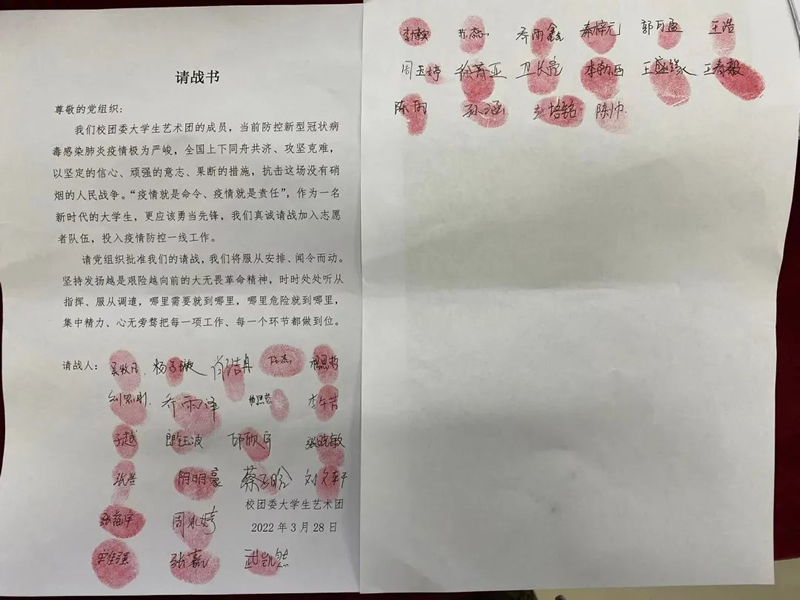 请战书
尊敬的党组织：
我们校团委大学生艺术团的成员，当前防控新型冠状病
毒感染肺炎疫情极为严峻，全国上下同舟共济、攻坚克难，
以坚定的信心、顽强的意志、果断的措施，抗击这场没有硝
烟的人民战争。“疫情就是命令、疫情就是责任”，作为一名
新时代的大学生，更应该勇当先锋，我们真诚请战加入志愿
者队伍，投入疫情防控一线工作。
请党组织批准我们的请战，我们将服从安排、闻令而动。
坚持发扬越是艰险越向前的大无畏革命精神，时时处处听从
指挥、服从调遣，哪里需要就到哪里，哪里危险就到哪里，
集中精力、心无旁骛把每一项工作、每一个环节都做到位。
请战人：
乔雨泽
于越 张晓敏
张誉 阴明豪
校团委大学生艺术团
2022年3月28日
武凯然
乔雨鑫 王浩
王春毅
陈雨 陈帅